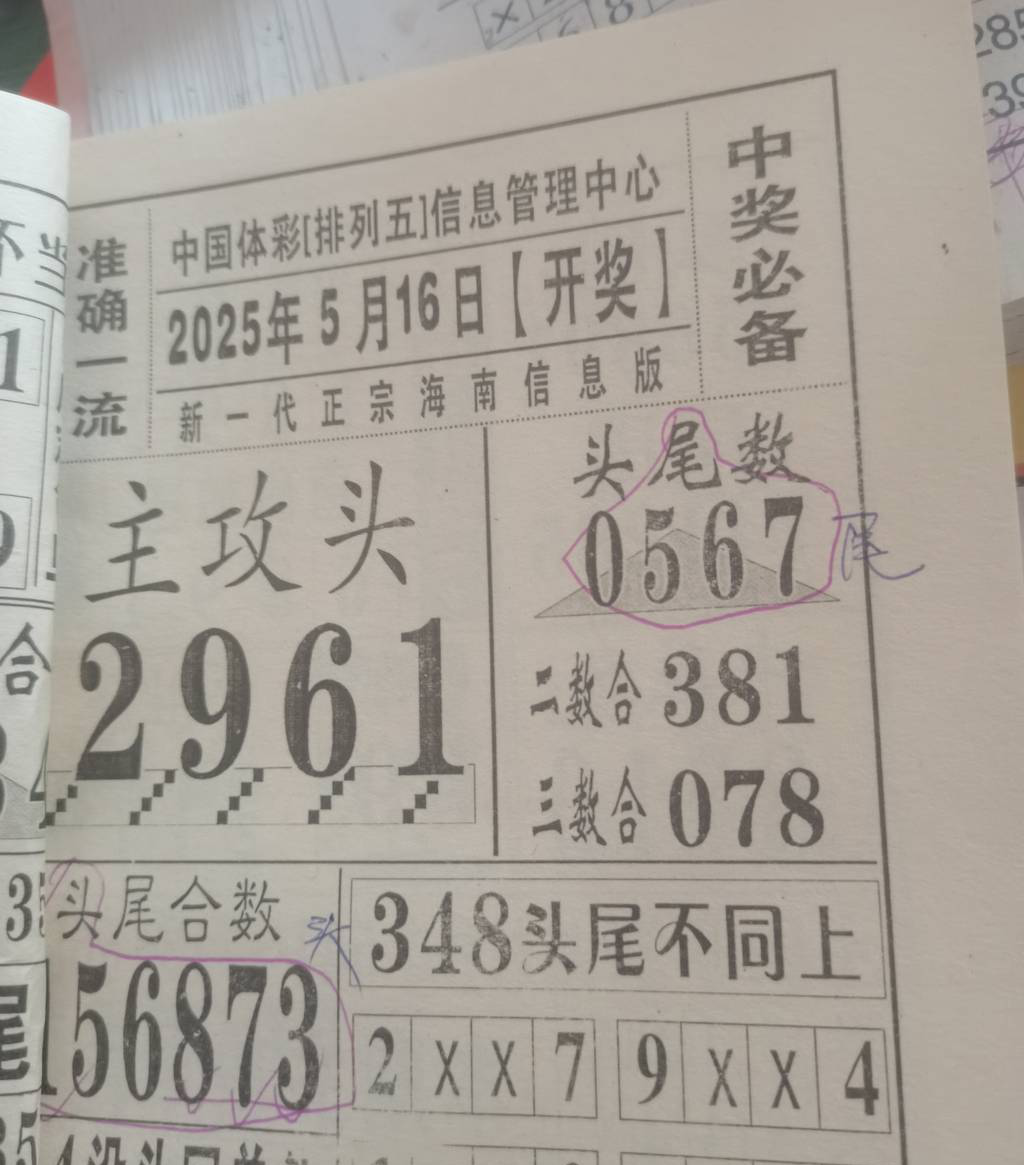 中国体彩[排列五]信息管理中心
2025年5月16日【开奖】
新一代正宗海南信息版
准确一流
中奖必备
主攻头
2961
头尾数
0567
尾
二数合 381
三数合 078
头尾合数
头
156873
348头尾不同上
2 X X 7
9 X X 4
合
尾